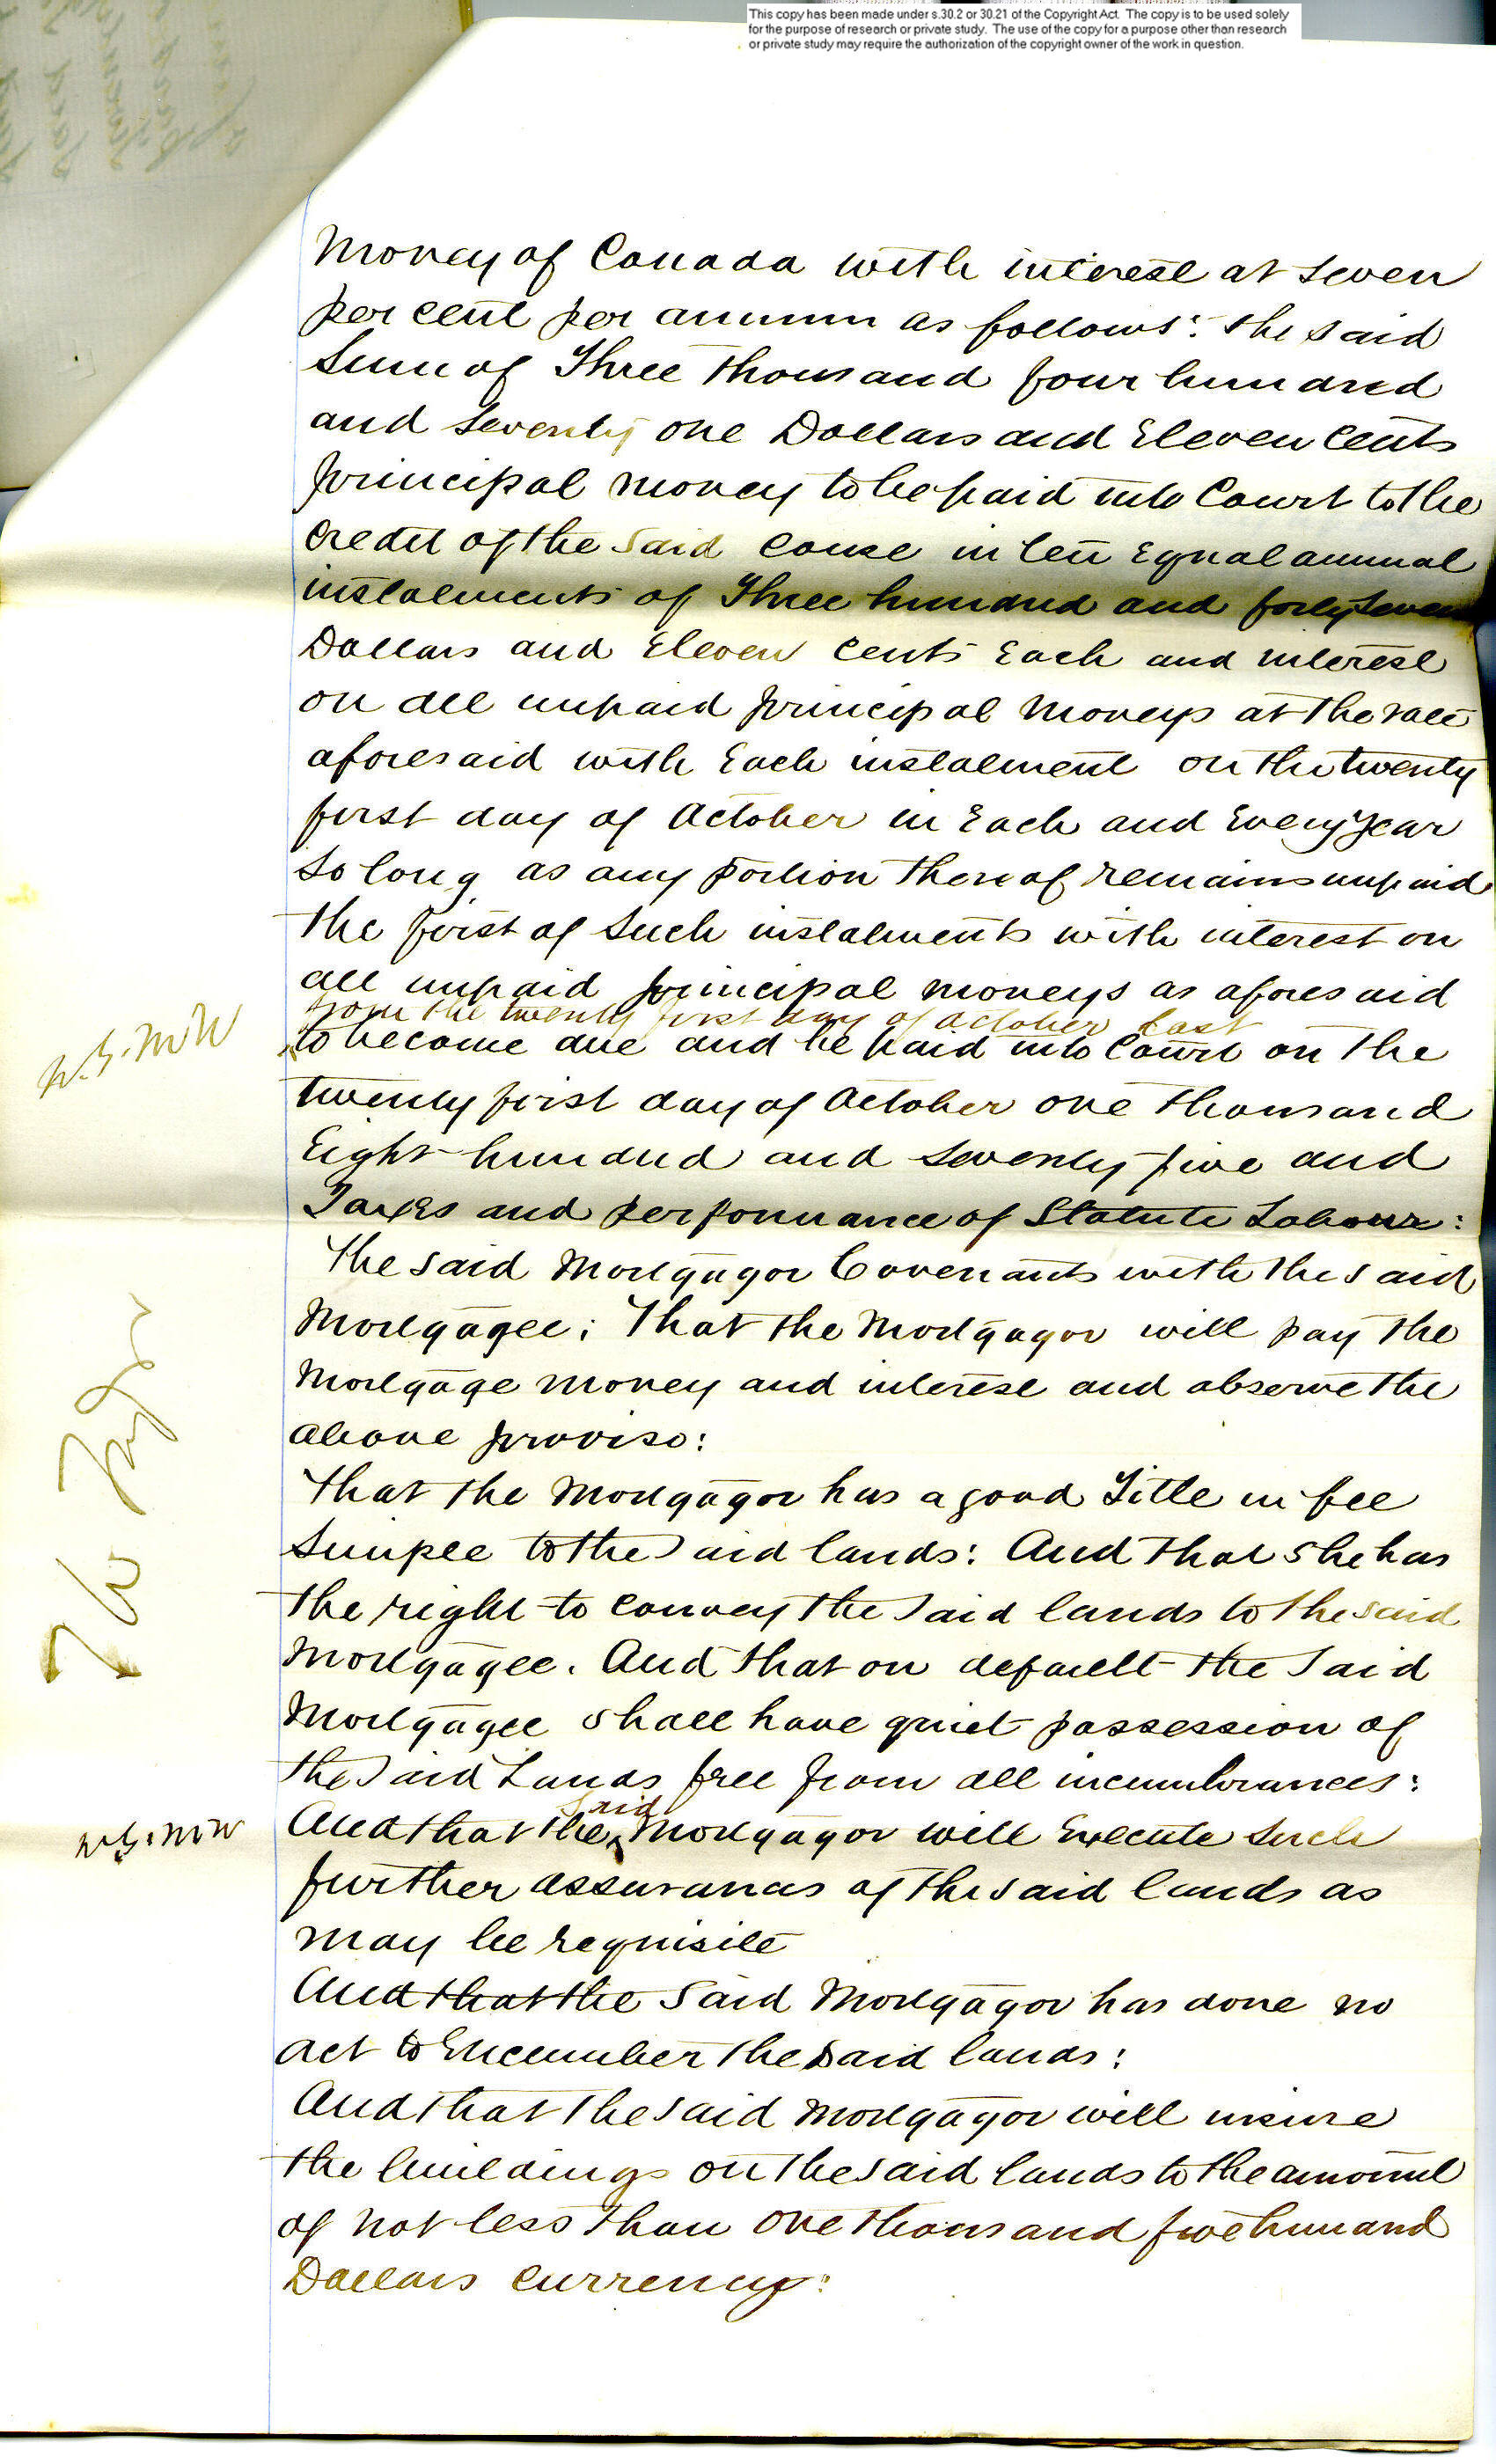 This copy has been made under s.30.2 or 30.21 of the Copyright Act. The copy is to be used solely
for the purpose of research or private study. The use of the copy for a purpose other than research
or private study may require the authorization of the copyright owner of the work in question.
Money of Canada with interest at Seven
per cent per annum as follows: the said
Sum of Three Thousand four hundred
and Seventy one Dollars and Eleven Cents
principal money to be paid into Court to the
credit of the Said Cause in ten Equal annual
instalments of Three hundred and forty Seven
Dollars and Eleven Cents Each and interest
on all unpaid principal Moneys at the rate
aforesaid with Each instalment on the twenty
first day of October in Each and Every Year
So long as any portion thereof remains unpaid
the first of Such instalments with interest on
all unpaid principal moneys as aforesaid
from the twenty first day of October last
to become due and be paid into Court on the
twenty first day of October one thousand
Eight hundred and Seventy five and
Taxes and performance of Statute Labour:
The said Mortgagor Covenants with the said
Mortgagee; That the Mortgagor will pay the
Mortgage money and interest and observe the
above proviso:
That the Mortgagor has a good Title in fee
Simple to the said lands: And that She has
the right to convey the said lands to the said
Mortgagee. And that on default the said
Mortgagee shall have quiet possession of
the said Lands free from all incumbrances:
And that the said Mortgagor will Execute Such
further assurances of the said lands as
may be requisite
And that the Said Mortgagor has done no
act to Encumber the said lands:
And that the said Mortgagor will insure
the buildings on the said lands to the amount
of not less than One thousand five hundred
Dollars currency: